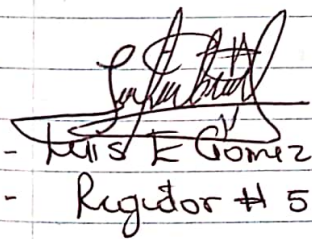 - Luis E Gomez
- Regidor # 5